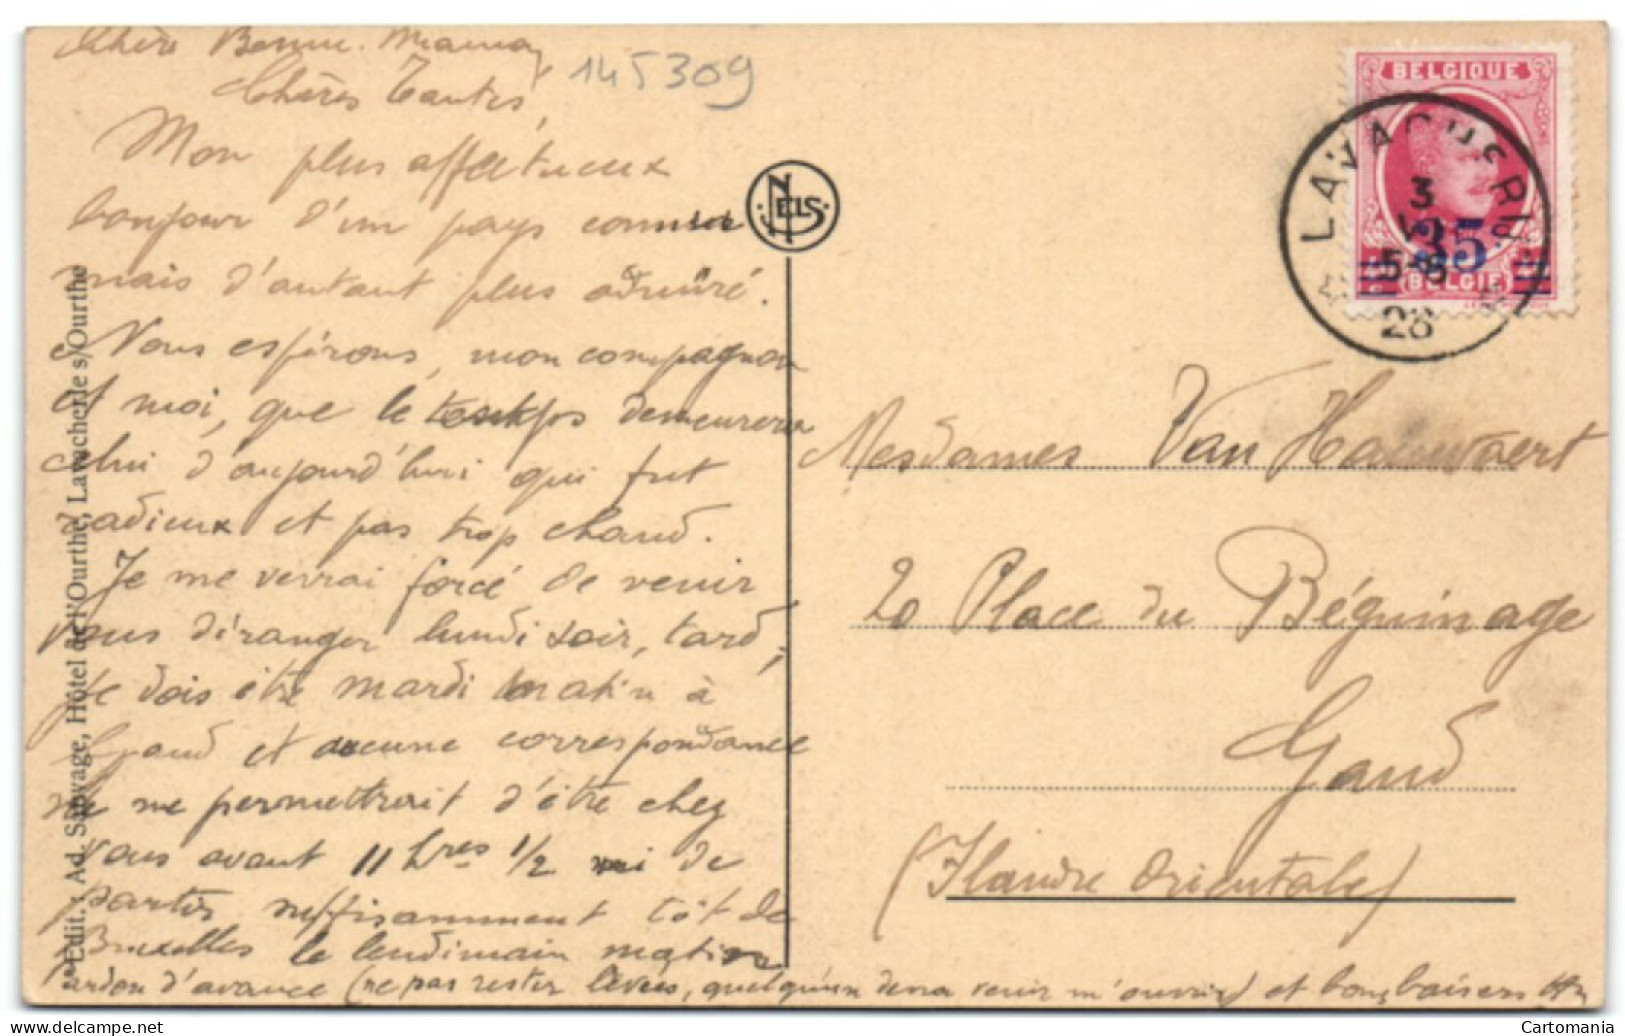 Chère Bonne-Maman,
Chères Tantes,
145309
Mon plus affectueux
bonjour d'un pays connu
mais d'autant plus admiré.
Nous espérons, mon compagnon
et moi, que le temps demeurera
celui d'aujourd'hui qui fut
radieux et pas trop chaud.
Je me verrai forcé de venir
vous déranger lundi soir, tard,
je dois être mardi matin à
Gand et aucune correspondance
ne me permettrait d'être chez
vous avant 11 hres 1/2 ni de
partir suffisamment tôt de
Bruxelles le lendimain matin
pardon d'avance (ne pas rester levés, quelqu'un devra venir m'ouvrir) et bons baisers
Edit. : Ad. Sauvage, Hôtel de l'Ourthe, Lavacherie s/Ourthe
NELS
BELGIQUE
35
BELGIE
LAVACHERIE
3
VI
5-6
28
Mesdames Van Hauwaert
20 Place du Béguinage
Gand
(Flandre Orientale)
Cartomania
www.delcampe.net